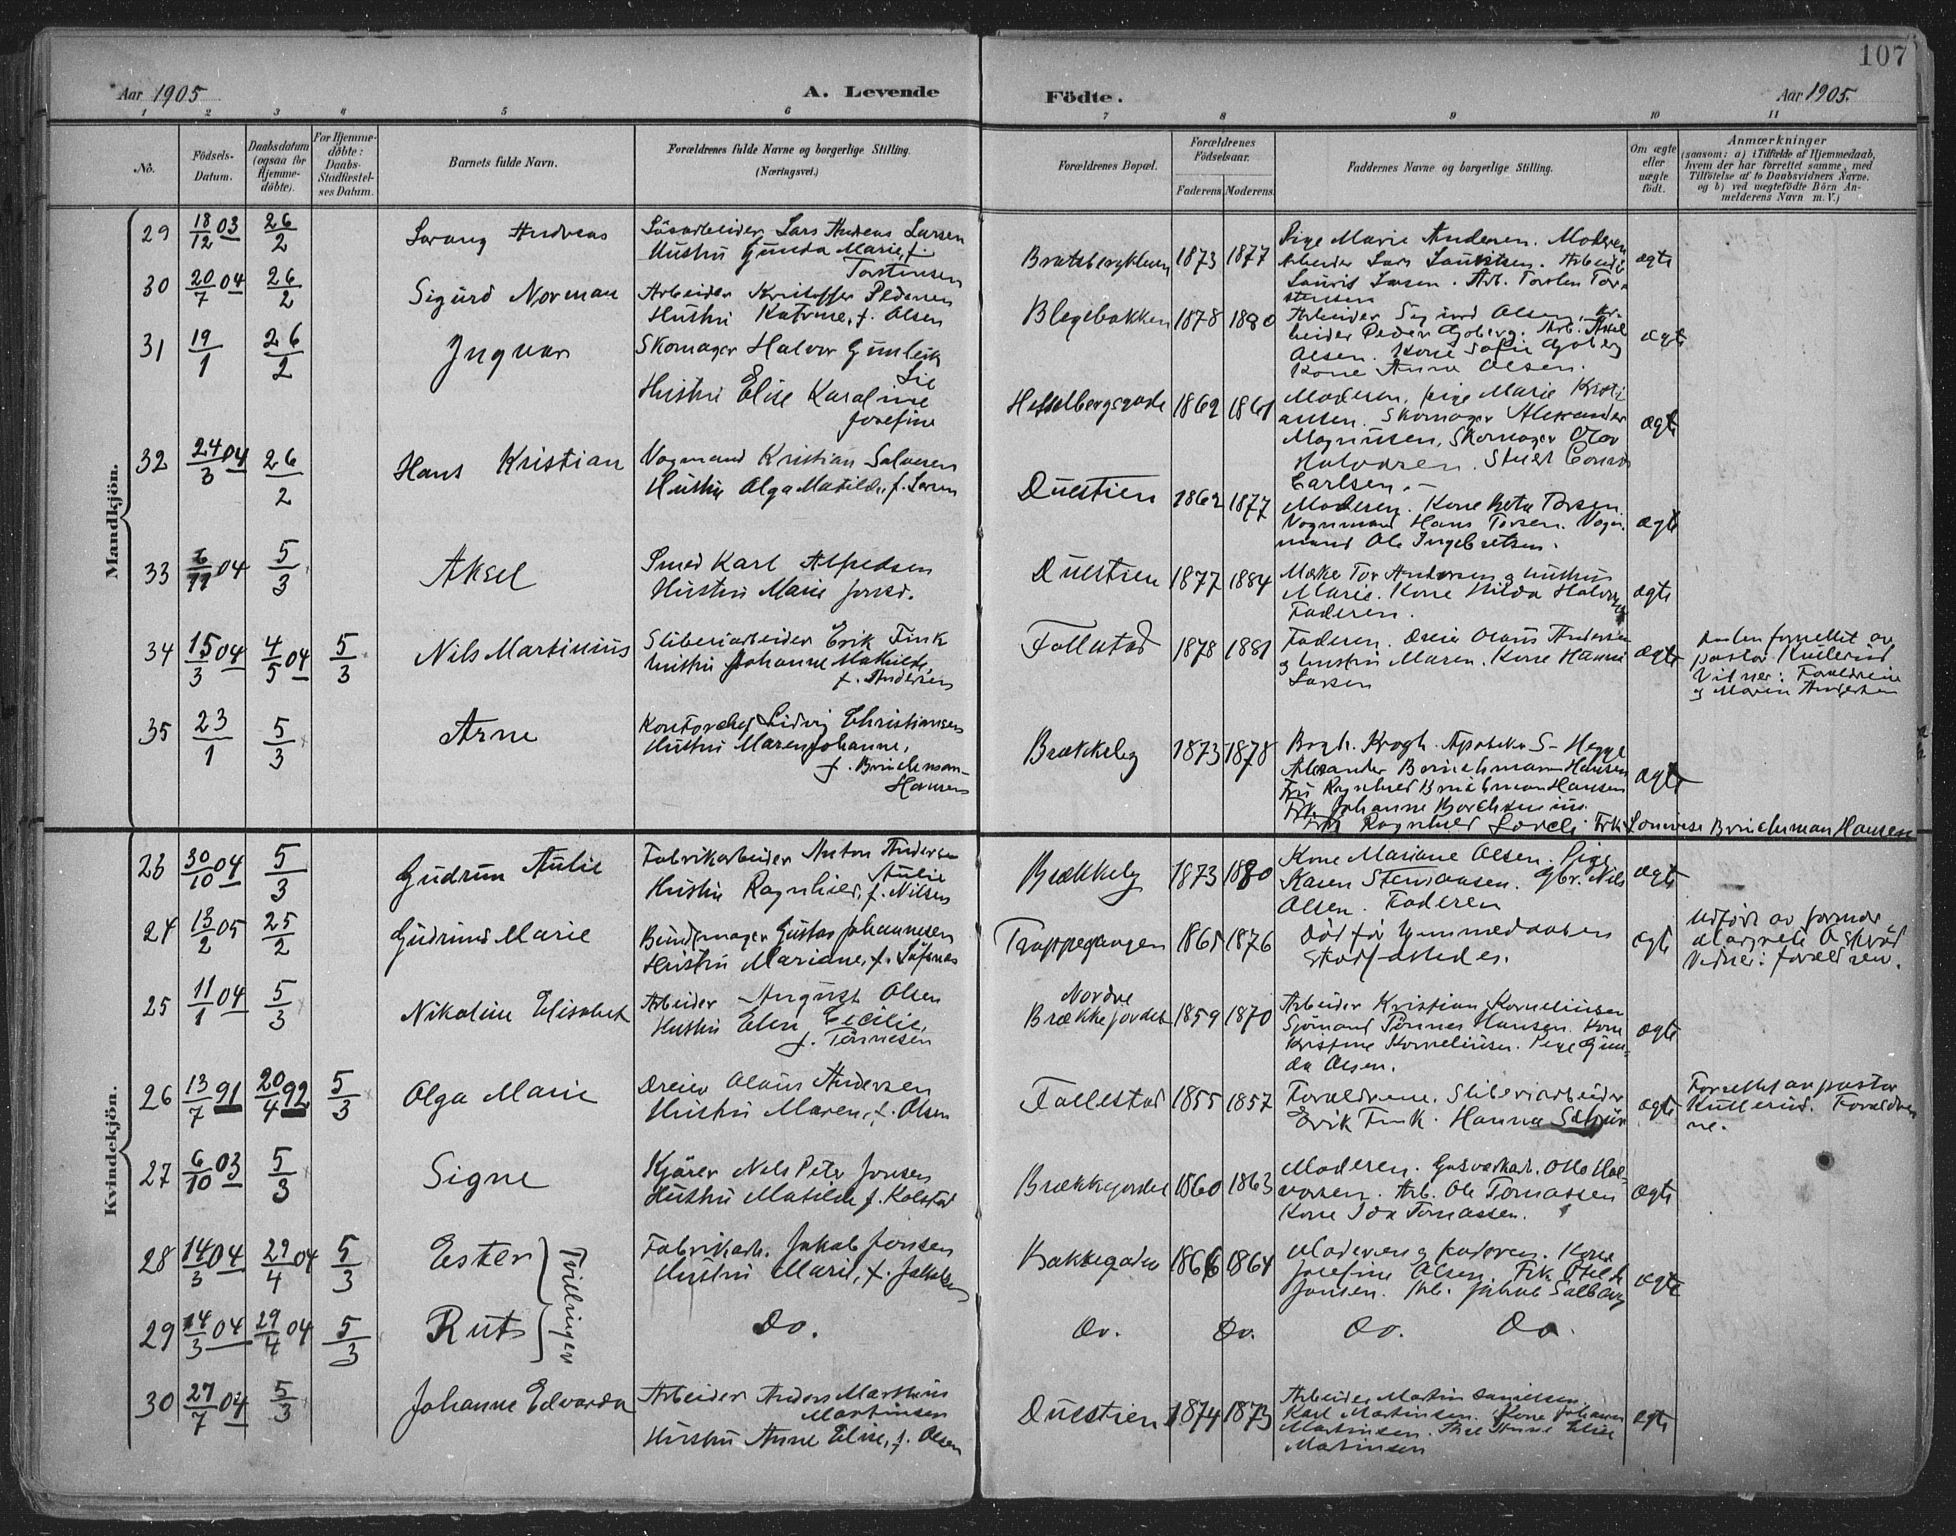 107
Aar 1905 A. Levende Födte. Aar 1905.
1 2 3 4 5 6 7 8 9 10 11
No. Födsels-Datum. Daabsdatum (ogsaa for Hjemme-döbte). For Hjemme-döbte: Daabs-Stadfæstel-ses Datum. Barnets fulde Navn. Forældrenes fulde Navne og borgerlige Stilling. (Næringsvei.) Forældrenes Bopæl. Forældrenes Födselsaar. Faderens Moderens. Faddernes Navne og borgerlige Stilling. Om ægte eller uægte født. Anmærkninger (saasom: a) i Tilfælde af Hjemmedaab, hvem der har forrettet samme, med Tilföielse af to Daabsvidners Navne, og b) ved uægtefödte Börn An-melderens Navn m. V.)
Mandkjön.
29 18/12 03 26/2 Andreas Lars Andreas Larsen
Hustru Gunda Marie, f. Torstensen
Bratsbergkleven 1873 1877 Pige Marie Andersen. Moderen
Arbeider Lars Lauritsen. Arbeid.
Laurits Larsen. Arb. Torsten Tor-
stensen ægte
30 20/7 04 26/2 Sigurd Norman Arbeider Kristoffer Pedersen
Hustru Katrine, f. Olsen
Blegebakken 1878 1880 Arbeider Sigurd Olsen, Ar-
beider Peder . Arb. Aksel
Olsen. Kone Sofie
Kone Anna Olsen. ægte
31 19/1 26/2 Ingvar Skomager Halvor Gunleik
Lie
Hustru Elise Karoline
Josefine
Hesselbergsgade 1862 1861 Moderen, pige Marie Kristi-
ansen. Skomager Alexander
Magnusen, Skomager Olav
Halvorsen.
Carlsen. ægte
32 24/3 04 26/2 Hans Kristian Vognmand Kristian Salvesen
Hustru Olga Matilde, f. Larsen
Duestien 1862 1877 Moderen. Kone Berta Torsen.
Vognmand Hans Torsen. Vogn-
mand Ole Ingebretsen. ægte
33 6/11 04 5/3 Aksel Smed Karl Alfredsen
Hustru Marie
Duestien 1877 1884 Tor Andersen & hustru
Marie. Kone Hilda
Faderen. ægte
34 15/3 04 4/5 04 5/3 Nils Martinius Sliberiarbeider Erik Fink
hustru Johanne Mathilde,
f. Andersen
Follestad 1878 1881 Faderen. Dreier Olaus Andersen
og hustru Maren. Kone Hanna
Larsen ægte Daaben forrettet av
pastor Kullerud
Vidner: Forældrene
og Maren Andersen
35 23/1 5/3 Arne Kontorchef Ludvig Christiansen
Hustru Maren Johanne,
f. Brinchmann-
Hansen
Brækkeby 1873 1878 Krogh. Apoteker S. Hegge
Alexander Brinchmann Hansen
Fru Ragnhild Brinchman Hansen
Frk. Johanne
Ragnhild . Frk. Lourense Brinchman Hansen ægte
Kvindekjön.
23 30/10 04 5/3 Gudrun Aulie Fabrikarbeider Anton Andersen
Aulie
Hustru Ragnhild, f. Nilsen
Brækkeby 1873 1880 Kone Mariane Olsen. Pige
Karen . Gbr. Nils
Olsen. Faderen ægte
24 13/2 05 25/2 Gudrund Marie Bundtmager Gustav Johannesen
Hustru Mariane, f.
Trappegangen 1865 1876 Död før hjemmedaaben
stadfæstedes. ægte Udført av jormor

Vidner: forældrene.
25 11/1 04 5/3 Nikoline Elisabet Arbeider August Olsen
Hustru Elen Cecilie,
f. Tönnesen
Nordre
Brækkejordet 1859 1870 Arbeider Kristian Korneliusen
Sjömand Tönnes Hansen. Kone
Kristine Korneliusen. Pige Gun-
da Olsen. ægte
26 13/7 91 20/4 92 5/3 Olga Marie Dreier Olaus Andersen
Hustru Maren, f. Olsen
Follestad 1855 1857 Forældrene. Sliberiarbeider
Erik Fink. Hanna ægte Forrettet av pastor
Kullerud. Forældre-
ne.
27 6/10 03 5/3 Signe Kjörer Nils Petr Jonsen
Hustru Matilde f. Kolstad
Brækkejordet 1860 1863 Moderen. Gasværkarb. Otto Hal-
vorsen. Arb. Ole Tomassen
Kone Ida Tomassen. ægte
28 14/3 04 29/4 04 5/3 Ester Tvillinger Fabrikarb. Jakob Jonsen
Hustru Marie, f. Jakobsen
Bakkegaden 1866 1864 Moderen og faderen. Kone
Josefine Olsen. Frk.
Jonsen. Arb. Jakob Solberg ægte
29 14/3 04 29/4 04 5/3 Ruts Do. Do. Do. Do. Do.
30 27/7 04 5/3 Johanne Edvarda Arbeider Anders Marthins
Martinsen
Hustru Anne Elise, f. Olsen
Duestien 1874 1873 Arbeider Martin Danielsen.
Karl Martinsen. Kone Johanne
Martinsen. Anne Elise
Martinsen ægte